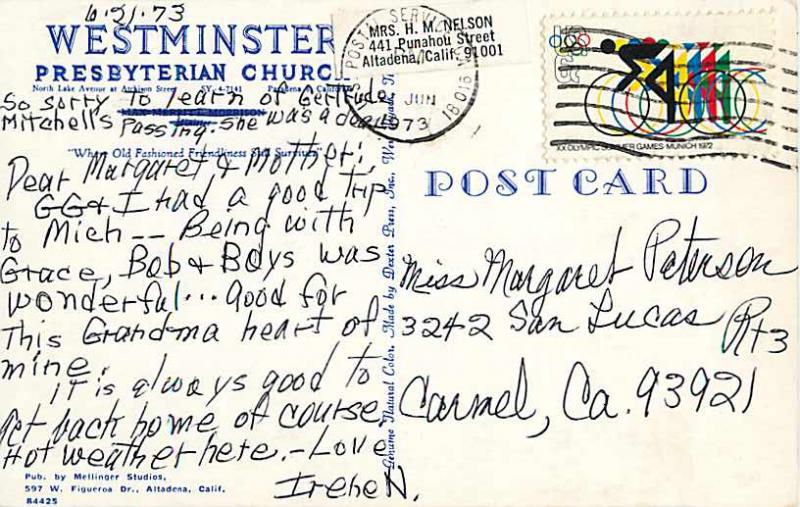 6.21.73
WESTMINSTER
PRESBYTERIAN CHURCH
North Lake Avenue at Atchison Street SY. 4-7141 Pasadena, California
So sorry to learn of Gertrude
MAX MERRITT MORRISON
Mitchell's passing. She was a dear
"Where Old Fashioned Friendliness Still Survives"
Dear Margaret & Mother;
GG & I had a good trip
to Mich -- Being with
Grace, Bob & Boys was
wonderful... good for
This Grandma heart of
mine.
It is always good to
get back home of course.
Hot weather here. - Love
Irene N.
Pub. by Mellinger Studios,
597 W. Figueroa Dr., Altadena, Calif.
84425
Genuine Natural Color. Made by Dexter Press, Inc.
POSTAL SERVICE
JUN
1973
MRS. H. M. NELSON
441 Punahou Street
Altadena, Calif. 91001
XX OLYMPIC SUMMER GAMES MUNICH 1972
POST CARD
Miss Margaret Peterson
3242 San Lucas Rt 3
Carmel, Ca. 93921